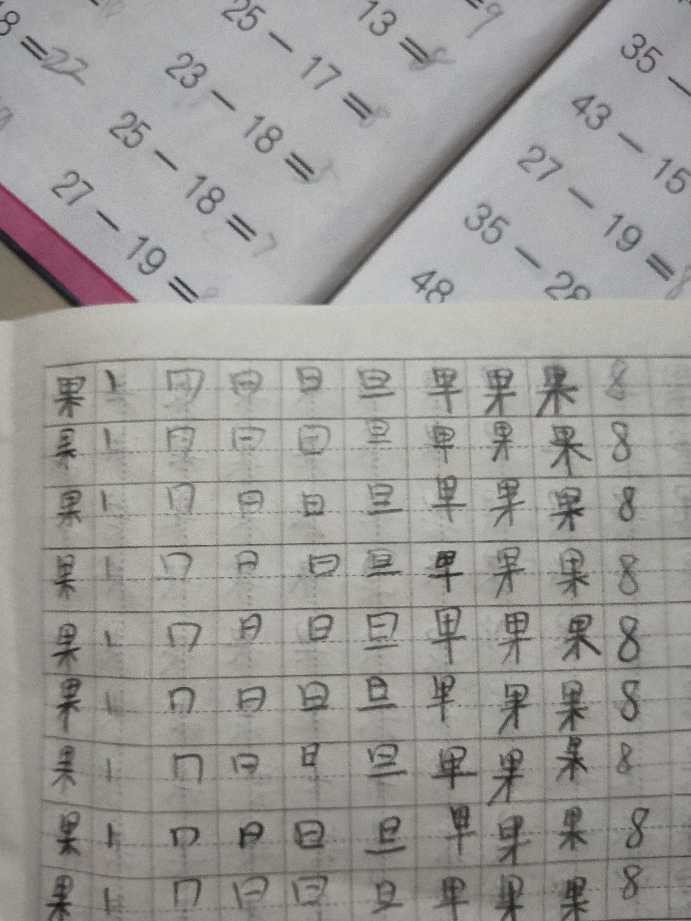 8=22
=9
13=8
25-17=8
23-18=5
25-18=7
27-19=8
35-
43-15
27-19=8
35-28
48
果 丨 日 日 日 旦 早 果 果 8
果 丨 日 日 日 旦 早 果 果 8
果 丨 冂 日 日 旦 早 果 果 8
果 丨 冂 日 日 旦 早 果 果 8
果 丨 冂 日 日 旦 早 果 果 8
果 丨 冂 日 日 旦 早 果 果 8
果 丨 冂 日 日 旦 早 果 果 8
果 丨 冂 日 日 旦 早 果 果 8
果 丨 冂 日 日 旦 早 果 果 8